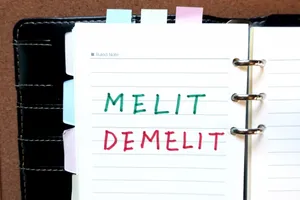 MELIT
DEMELIT